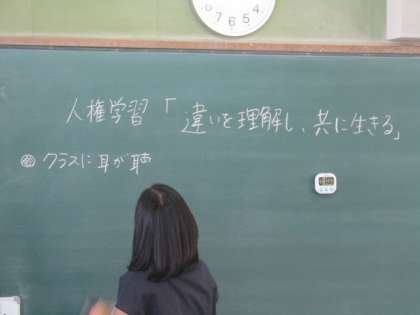 7 6 5 4
人権学習「違いを理解し、共に生きる」
クラスに耳が聴